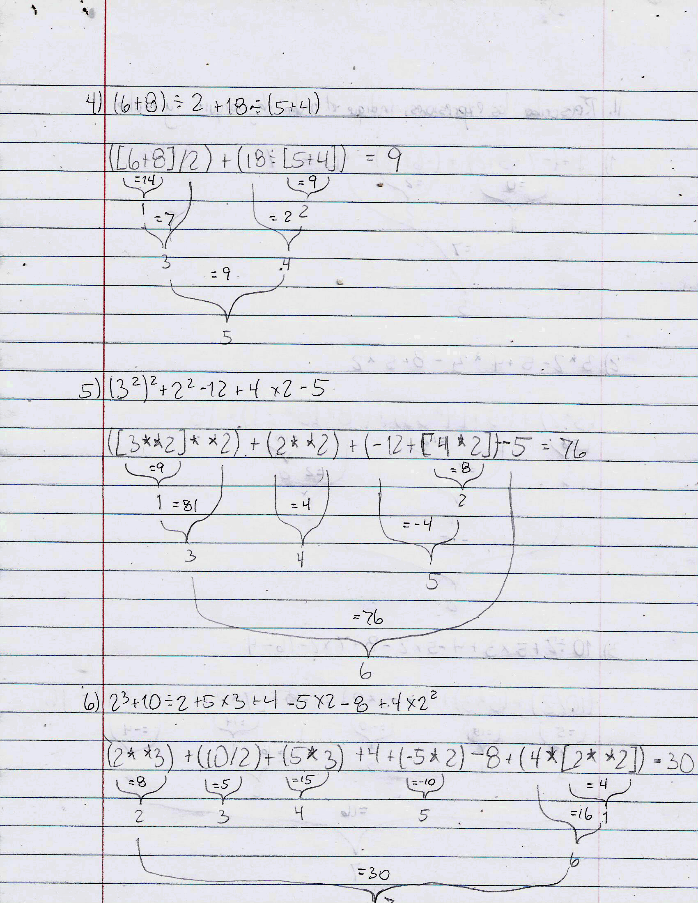 4) (6+8) ÷ 2 + 18 ÷ (5+4)
([6+8]/2) + (18 ÷ [5+4]) = 9
=14 =9
1 =7 =2 2
3 =9 4
5
5) (3²)² + 2² - 12 + 4 × 2 - 5
([3**2]**2) + (2**2) + (-12+[4*2]) - 5 = 76
=9 =8
1 =81 =4 2
=-4
3 4
5
=76
6
6) 2³ + 10 ÷ 2 + 5 × 3 + 4 - 5 × 2 - 8 + 4 × 2²
(2**3) + (10/2) + (5*3) + 4 + (-5*2) - 8 + (4*[2**2]) = 30
=8 =5 =15 =-10 =4
2 3 4 5 =16 1
6
=30